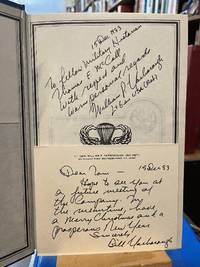 15 Dec 1983
To fellow Military Historian
Thomas E. McCall
With regard and
warm personal regards
William P. Yarborough
Lt Gen
15 Dec 83
Dear Tom —
Hope to see you at
a future meeting of
the Company. In
the meantime, have
a Merry Christmas and a
prosperous New Year
Sincerely
Bill Yarborough